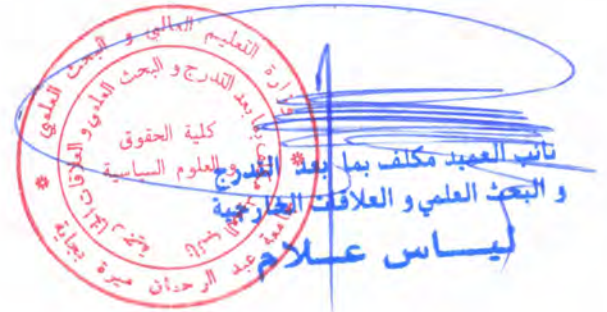 وزارة التعليم العالي و البحث العلمي
جامعة عبد الرحمان ميرة بجاية
نائب العميد مكلف بما بعد التدرج و البحث العلمي و العلاقات الخارجية
كلية الحقوق
و العلوم السياسية
نائب العميد مكلف بما بعد التدرج
و البحث العلمي و العلاقات الخارجية
ليـــاس عـــلام